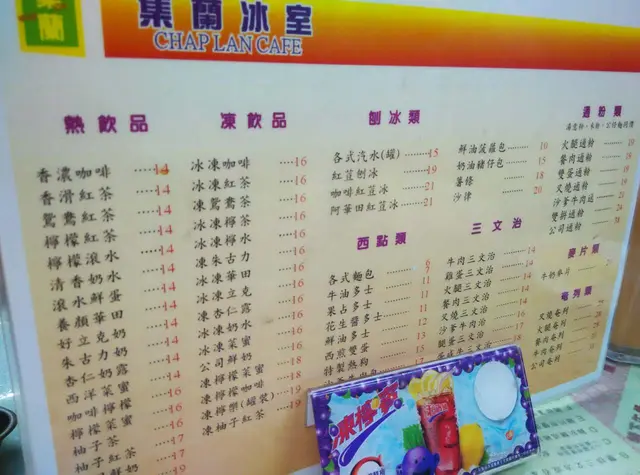 集蘭
集蘭冰室
CHAP LAN CAFE
熱飲品
香濃咖啡 ····14
香滑紅茶 ····14
鴛鴦紅茶 ····14
檸檬紅茶 ····14
檸檬滾水 ····14
清香奶水 ····14
滾水鮮蛋 ····14
養顏華田 ····14
好立克奶 ····14
朱古力奶 ····14
杏仁奶露 ····14
西洋菜蜜 ····16
咖啡檸檬 ····16
檸檬菜蜜 ····16
柚子茶 ····17
柚子紅茶
凍飲品
冰凍咖啡 ····16
冰凍紅茶 ····16
凍鴛鴦茶 ····16
冰凍檸茶 ····16
冰凍檸水 ····16
凍朱古力 ····16
冰凍華田 ····16
冰凍立克 ····16
凍杏仁露 ····16
冰凍奶水 ····16
冰凍菜蜜 ····16
公司鮮奶 ····18
凍檸檬菜蜜 ····18
凍檸檬咖啡 ····18
凍檸樂(罐裝) ····19
凍柚子紅茶 ····19
刨冰類
各式汽水(罐) ····15
紅荳刨冰 ····19
咖啡紅荳冰 ····21
阿華田紅荳冰 ····21
西點類
各式麵包 6
牛油多士 7
果占多士 11
花生醬多士 11
鮮油多士 12
西煎雙蛋 13
特製熱狗 15
鮮油菠蘿包 10
奶油豬仔包 15
薯條 18
沙律 20
三文治
牛肉三文治 14
雞蛋三文治 14
火腿三文治 14
餐肉三文治 14
叉燒三文治 14
沙爹牛肉治 16
火腿蛋治 17
餐肉蛋治 18
通粉類
火腿通粉
餐肉通粉
雙蛋通粉 19
叉燒通粉 19
沙爹牛肉通 21
雙拼通粉 24
公司通粉
麥片類
牛奶麥片
奄列類
叉燒奄列
火腿奄列
餐肉奄列
牛肉奄列
公司奄列